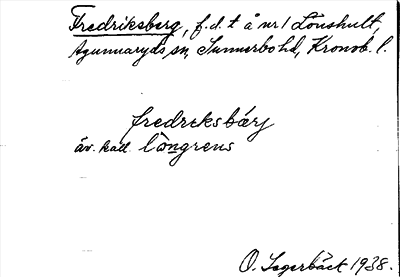 Fredriksberg, f.d.t å nr 1 Lönshult,
Agunnaryds sn, Sunnerbo hd, Kronob. l.
fredreksbárj
äv. kall. lòngrens
O. Lagerbäck 1938.